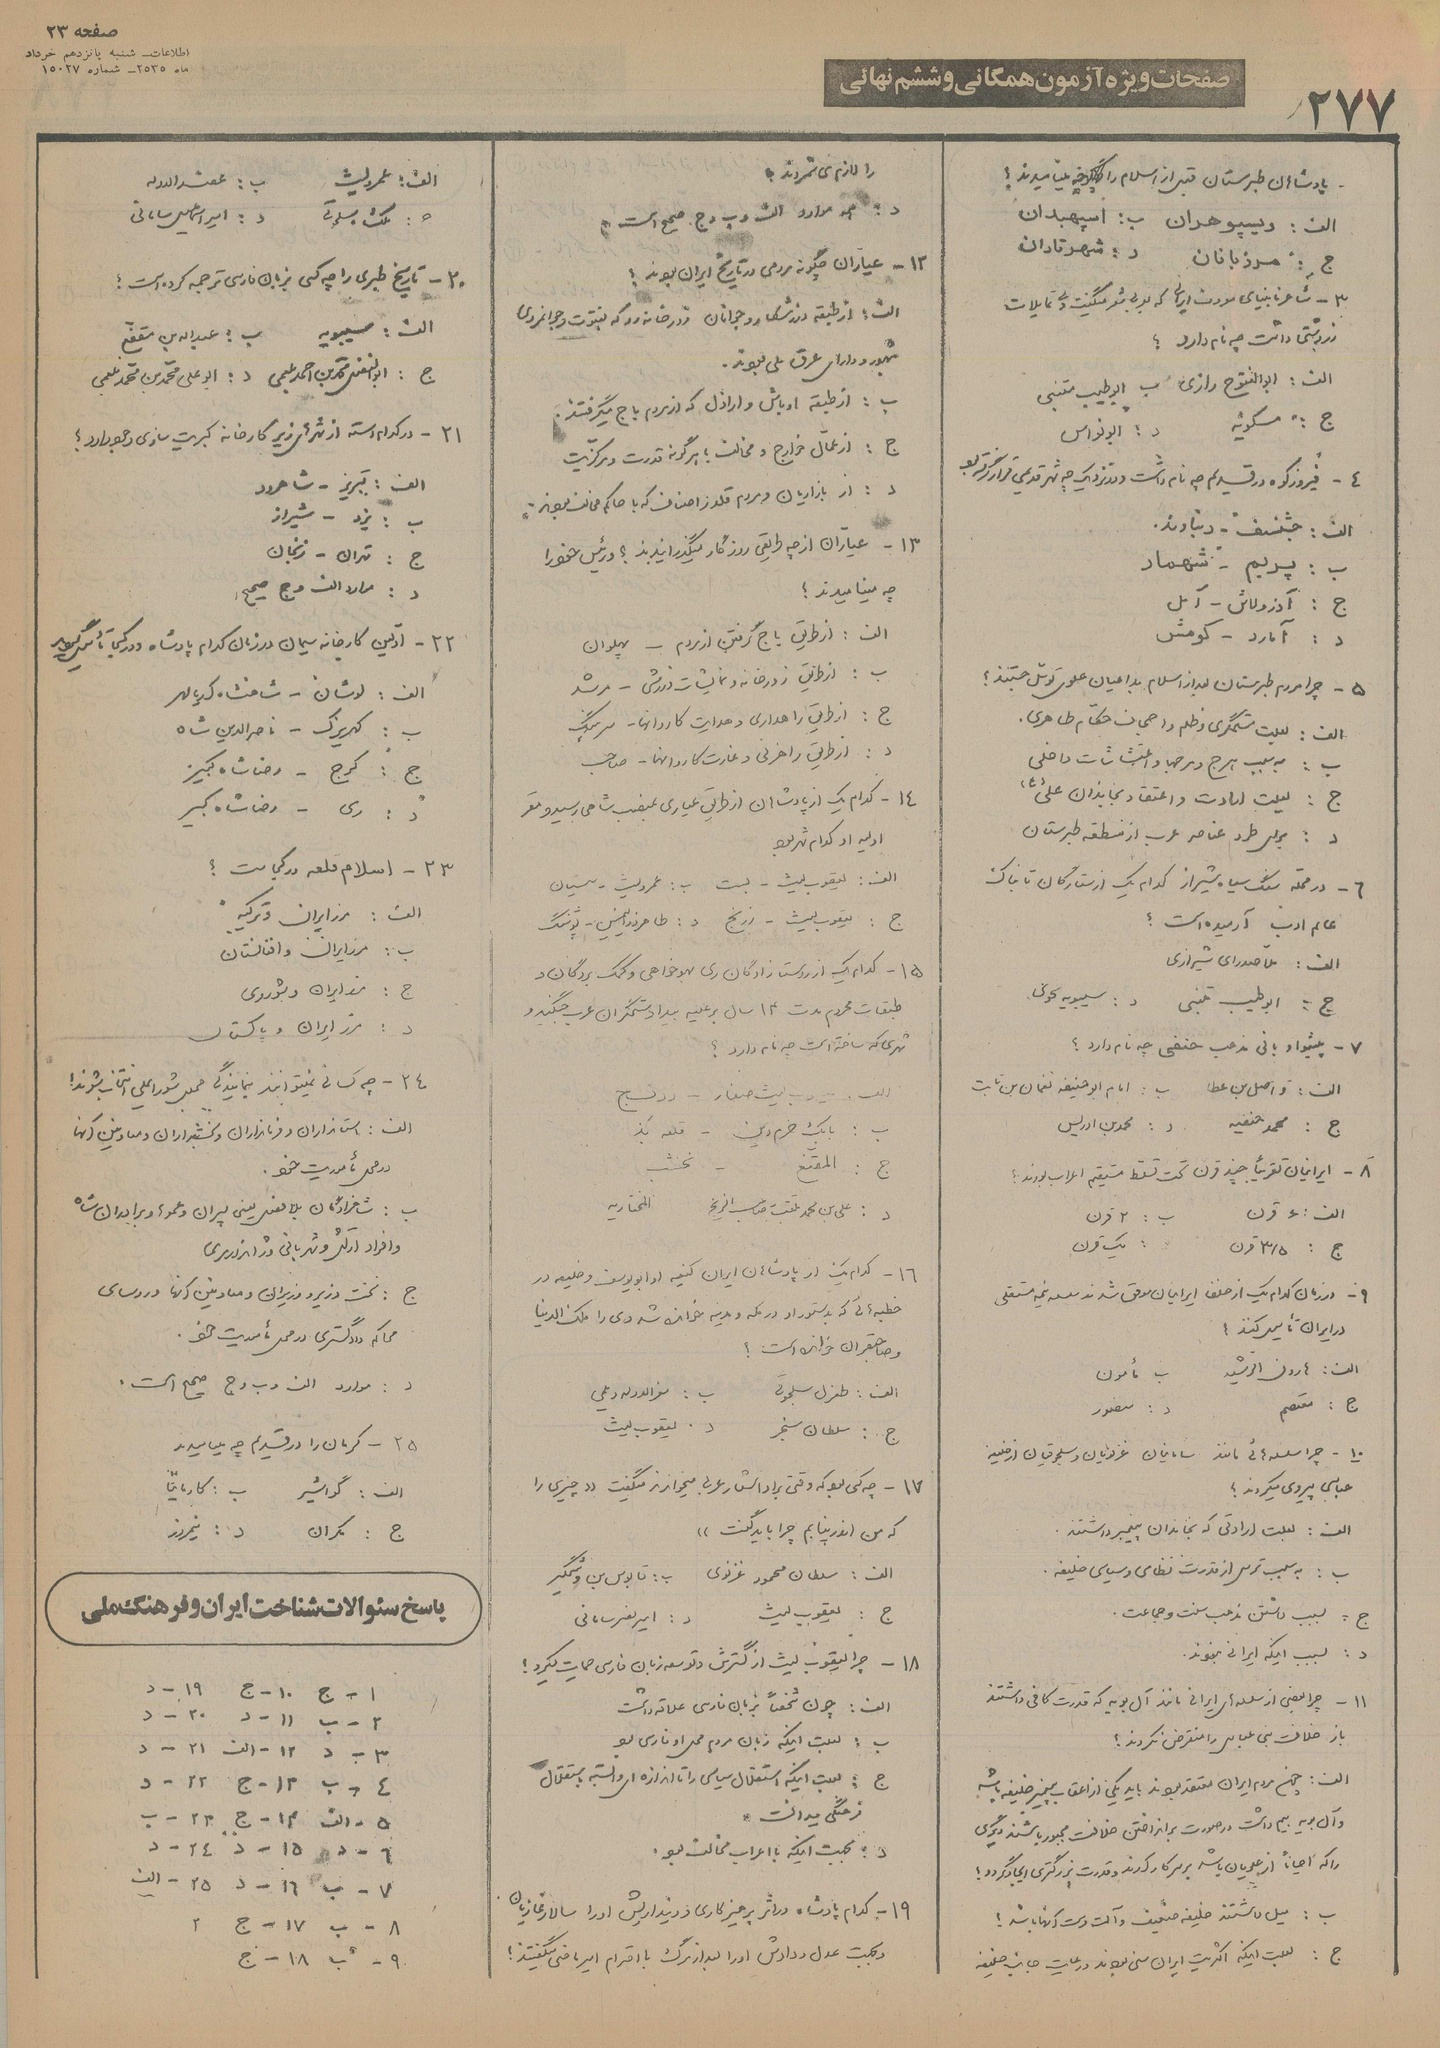 صفحه ۲۳
اطلاعات ـ شنبه پانزدهم خرداد
ماه ۲۵۳۵ ـ شماره ۱۵۰۲۷
صفحات ویژه آزمون همگانی و ششم نهائی
۲۷۷
پادشاهان طبرستان قبل از اسلام را چه مینامیدند ؟
الف : ویسپوهران ب : اسپهبدان
ج : مرزبانان د : شهرتادان
۳ - شاعر نابینای معروف ایرانی که بعربی شعر میگفت و تمایلات
زردشتی داشت چه نام دارد ؟
الف : ابوالفتوح رازی ب ابوطیب متنبی
ج : مسکویه د : ابونواس
۴ - فیروزکوه در قدیم چه نام داشت و در نزدیک چه شهر قدیمی قرار گرفته بود
الف : جشنسف - دنباوند .
ب : پریم - شهمار
ج : آذرولاش - آمل
د : آمارد - کومش
۵ - چرا مردم طبرستان بعد از اسلام بداعیان علوی توسل جستند ؟
الف : بعلت ستمگری و ظلم و اجحاف حکام طاهری .
ب : به سبب هرج و مرجها و اغتشاشات داخلی
ج : بعلت ارادت و اعتقاد بخاندان علی (ع)
د : برای طرد عناصر عرب از منطقه طبرستان
۶ - در محله سنگ سیاه شیراز کدام یک از ستارگان تابناک
عالم ادب آرمیده است ؟
الف : ملاصدرای شیرازی
ج : ابوطیب متنبی د : سیبویه نحوی
۷ - پیشوا و بانی مذهب حنفی چه نام دارد ؟
الف : واصل بن عطا ب : امام ابوحنیفه نعمان بن ثابت
ج : محمد حنفیه د : محمد بن ادریس
۸ - ایرانیان تقریباً چند قرن تحت تسلط مستقیم اعراب بودند ؟
الف : ۶ قرن ب : ۲ قرن
ج : ۳/۵ قرن : یک قرن
۹ - در زمان کدام یک از خلفا ایرانیان موفق شدند سلسله نیمه مستقلی
در ایران تأسیس کنند ؟
الف : هارون الرشید ب مأمون
ج : معتصم د : منصور
۱۰ - چرا سلسله هائی مانند سامانیان غزنویان و سلجوقیان از خلیفه
عباسی پیروی میکردند ؟
الف : بعلت ارادتی که بخاندان پیغمبر داشتند .
ب : به سبب ترس از قدرت نظامی و سیاسی خلیفه .
ج : بسبب داشتن مذهب سنت و جماعت .
د : بسبب اینکه ایرانی نبودند .
۱۱ - چرا بعضی از سلسله های ایرانی مانند آل بویه که قدرت کافی داشتند
باز خلافت بنی عباس را منقرض نکردند ؟
الف : چون مردم ایران معتقد بودند باید یکی از اعقاب پیغمبر خلیفه باشد
و آل بویه بیم داشت در صورت برانداختن خلافت مجبور باشند دیگری
را که احیاناً از علویان باشد بر سر کار آورند و قدرت بزرگتری ایجاد گردد ؛
ب : میل داشتند خلیفه ضعیف و آلت دست آنها باشد ؛
ج : بعلت اینکه اکثریت ایران سنی بودند و رعایت جانب خلیفه
را لازم می شمردند .
د : همه موارد الف و ب و ج صحیح است .
۱۲ - عیاران چگونه مردمی در تاریخ ایران بودند ؟
الف : از طبقه ورزشکار و جوانان زورخانه رو که بفتوت و جوانمردی
مشهور و دارای عرق ملی بودند .
ب : از طبقه اوباش و اراذل که از مردم باج میگرفتند .
ج : از عمال خوارج و مخالف با هرگونه قدرت و مرکزیت
د : از بازاریان و مردم قلدر اصناف که با حاکم مخالف بودند .
۱۳ - عیاران از چه طریقی روزگار میگذرانیدند ؟ و رئیس خود را
چه مینامیدند ؟
الف : از طریق باج گرفتن از مردم - پهلوان
ب : از طریق زورخانه و نمایشات ورزشی - مرشد
ج : از طریق راهداری و هدایت کاروانها - سرهنگ
د : از طریق راهزنی و غارت کاروانها - صاحب
۱۴ - کدام یک از پادشاهان از طریق عیاری بمنصب شاهی رسید و مقر
اولیه او کدام شهر بود
الف : یعقوب لیث - بست ب : عمرولیث - سیستان
ج : یعقوب لیث - زرنج د : طاهر ذوالیمینین - پوشنگ
۱۵ - کدام یک از روستازادگان ری بهواخواهی و کمک بردگان و
طبقات محروم مدت ۱۴ سال بر علیه بیدادستمگران عرب جنگید و
شهری که ساخته است چه نام دارد ؟
الف : یعقوب لیث صفار - زرنج
ب : بابک خرم دین - قلعه بذ
ج : المقنع - نخشب
د : علی بن محمد ملقب به صاحب الزنج المختاریه
۱۶ - کدام یک از پادشاهان ایران کنیه او ابویوسف و خلیفه در
خطبه ائی که بدستور او در مکه و مدینه خوانده شد وی را ملک الدنیا
و صاحبقران خوانده است ؟
الف : طغرل سلجوقی ب : معزالدوله دیلمی
ج : سلطان سنجر د : یعقوب لیث
۱۷ - چه کسی بود که وقتی برای او اشعار عربی میخواندند میگفت (( چیزی را
که من اندر نیابم چرا باید گفت ))
الف : سلطان محمود غزنوی ب : قابوس بن وشمگیر
ج : یعقوب لیث د : امیر نصر سامانی
۱۸ - چرا یعقوب لیث از گسترش و توسعه زبان فارسی حمایت میکرد ؟
الف : چون شخصاً بزبان فارسی علاقه داشت
ب : بعلت اینکه زبان مردم محل او فارسی بود
ج : بعلت اینکه استقلال سیاسی را تا اندازه ای وابسته باستقلال
فرهنگی میدانست .
د : بجهت اینکه با اعراب مخالف بود .
۱۹ - کدام پادشاه در اثر پرهیزکاری و دینداریش او را سالار غازیان
و بجهت عدل و دادش او را بعد از مرگ با احترام امیر ماضی میگفتند ؟
الف : عمرولیث ب : عضدالدوله
ج : ملکشاه سلجوقی د : امیر اسمعیل سامانی
۲۰ - تاریخ طبری را چه کسی بزبان فارسی ترجمه کرده است ؟
الف : سیبویه ب : عبداله بن مقفع
ج : ابوالفضل محمد بن احمد بلعمی د : ابوعلی محمد بن محمد بلعمی
۲۱ - در کدام دسته از شهرهای زیر کارخانه کبریت سازی وجود دارد ؟
الف : تبریز - شاهرود
ب : یزد - شیراز
ج : تهران - زنجان
د : موارد الف و ج صحیح
۲۲ - اولین کارخانه سیمان در زمان کدام پادشاه و در کجا تأسیس گردید
الف : لوشان - شاهنشاه آریامهر
ب : کهریزک - ناصرالدین شاه
ج : کرج - رضاشاه کبیر
د : ری - رضاشاه کبیر
۲۳ - اسلام قلعه در کجاست ؟
الف : مرز ایران و ترکیه
ب : مرز ایران و افغانستان
ج : مرز ایران و شوروی
د : مرز ایران و پاکستان
۲۴ - چه کسانی نمیتوانند بنمایندگی مجلس شورایملی انتخاب شوند ؟
الف : استانداران و فرمانداران و بخشداران و معاونین آنها
در محل مأموریت خود .
ب : شاهزادگان بلافصل یعنی پسران و عمو و برادران شاه
و افراد ارتش و شهربانی و ژاندارمری
ج : نخست وزیر و وزیران و معاونین آنها و روسای
محاکم دادگستری در محل مأموریت خود .
د : موارد الف و ب و ج صحیح است .
۲۵ - کرمان را در قدیم چه مینامیدند
الف : گواشیر ب : کارمانیا
ج : مکران د : نیمروز
پاسخ سئوالات شناخت ایران و فرهنگ ملی
۱ - ج ۱۰ - ج ۱۹ - د
۲ - ب ۱۱ - د ۲۰ - د
۳ - د ۱۲ - الف ۲۱ - د
۴ - ب ۱۳ - ج ۲۲ - د
۵ - الف ۱۴ - ج ۲۳ - ب
۶ - د ۱۵ - د ۲۴ - د
۷ - ب ۱۶ - د ۲۵ - الف
۸ - ب ۱۷ - ج ۲
۹ - ب ۱۸ - ج